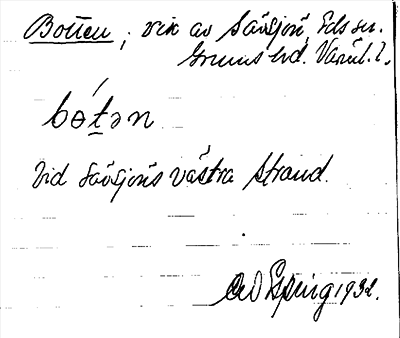 Botten, vik av Sävsjön, Eds sn.
Grums hd. Värml. l.
bo̱tən
Vid Sävsjöns västra strand.
1932.